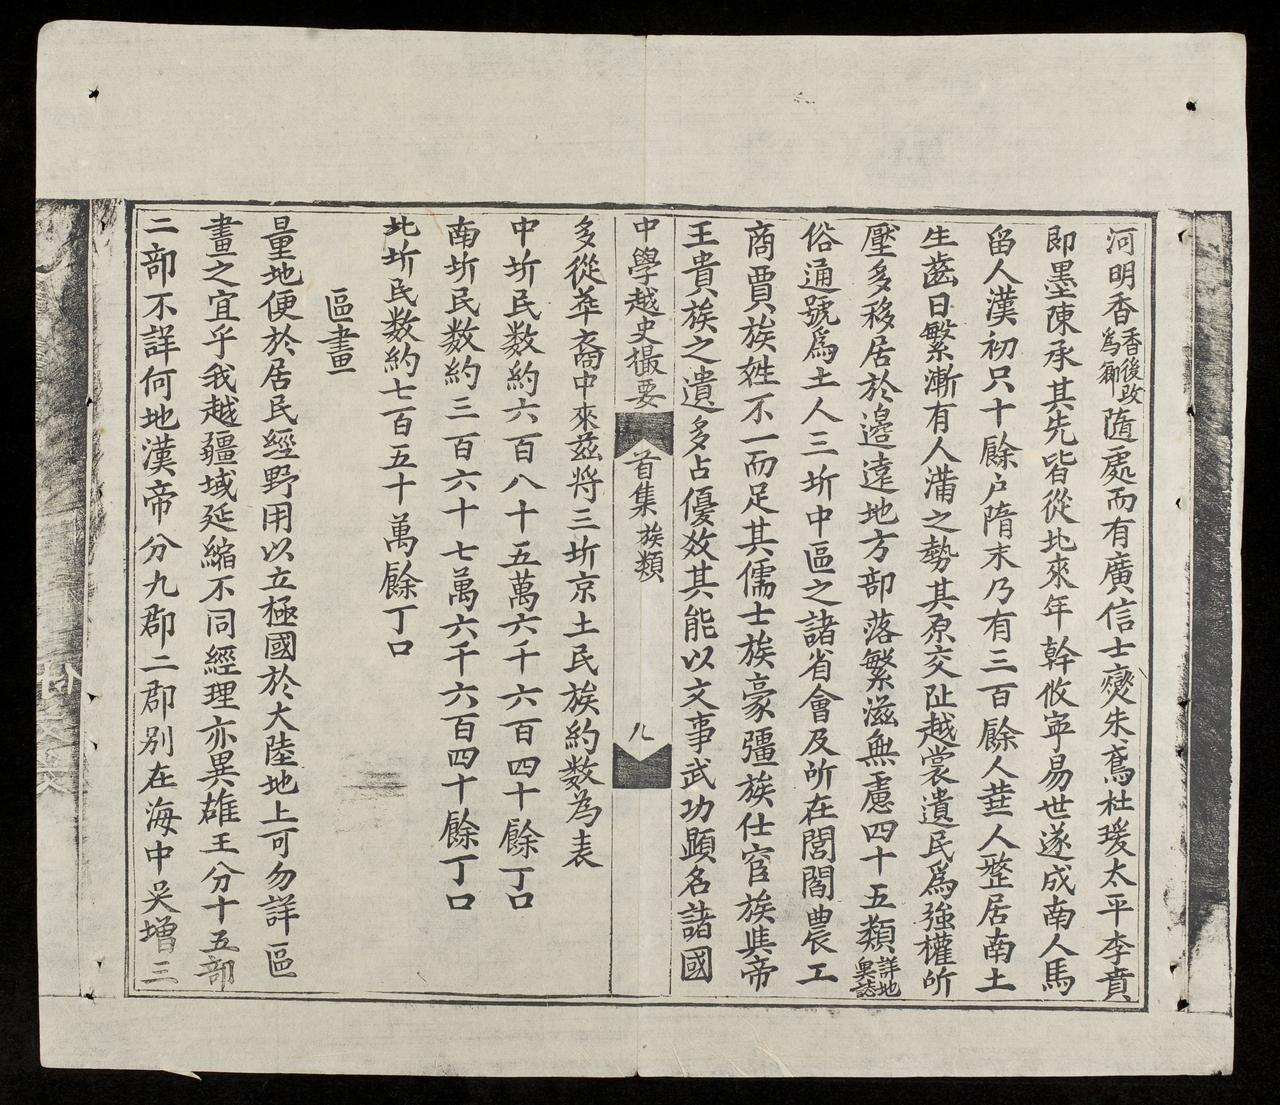 河明香香後改為鄉隨處而有廣信士燮朱鳶杜瑗太平李賁
即墨陳承其先皆從北來年幹攸寧易世遂成南人馬
留人漢初只十餘户隋末乃有三百餘人𦲷人整居南土
生齒日繁漸有人滿之勢其原交趾越裳遺民爲強權所
壓多移居於邊遠地方部落繁滋無慮四十五類詳地輿誌
俗通號爲土人三圻中區之諸省會及所在閭閻農工
商賈族姓不一而足其儒士族豪彊族仕宦族與帝
王貴族之遺多占優效其能以文事武功顯名諸國
中學越史撮要 首集 族類 九
多從華裔中來茲將三圻京土民族約数為表
中圻民数約六百八十五萬六千六百四十餘丁口
南圻民数約三百六十七萬六千六百四十餘丁口
北圻民数約七百五十萬餘丁口
區畫
量地便於居民經野用以立極國於大陸地上可勿詳區
畫之宜乎我越疆域延縮不同經理亦異雄王分十五部
二部不詳何地漢帝分九郡二郡别在海中吳增三